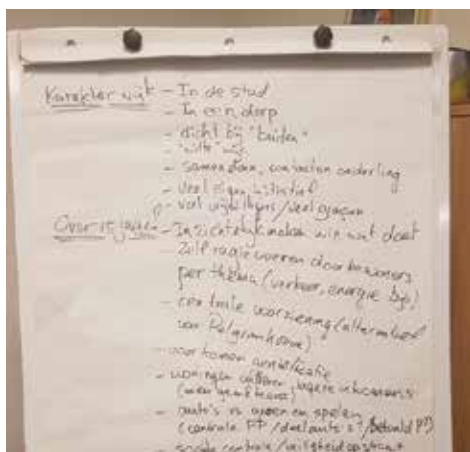 Karakter wijk - In de stad
- In een dorp
- dicht bij "buiten"
"witte" wijk
- samen doen, contacten onderling
- veel eigen initiatief
- veel vrijwilligers / veel groepen
- Inzichtelijk maken wie wat doet
- Zelf regie voeren door bewoners
per thema (verkeer, energie bijv)
- centrale voorziening (alternatief
voor Pelgrimhoeve)
- voorkomen
- woningen lagere inkomens
- auto's vs groen en spelen
(centrale PP / deelauto's? / betaald PP)
- sociale controle / veiligheid op straat